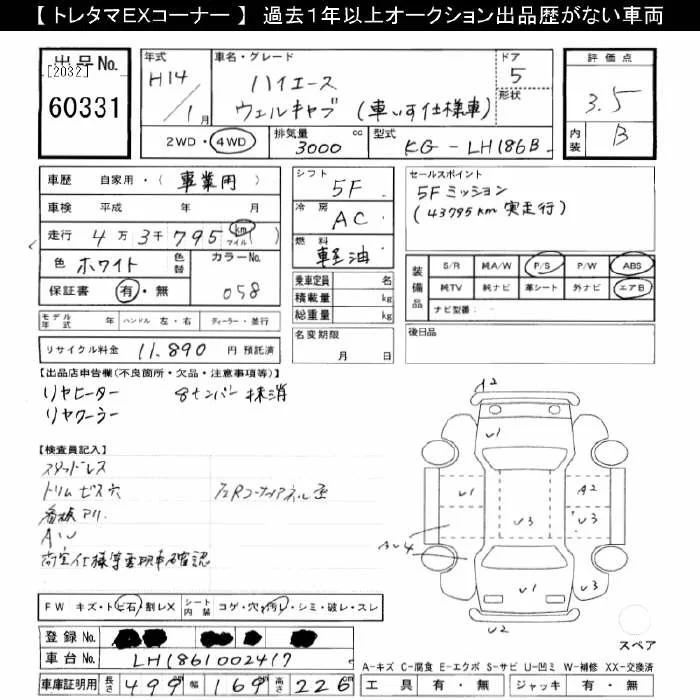 【 トレタマEXコーナー 】 過去１年以上オークション出品歴がない車両
出品No.
[2032]
60331
年式
H14/1月
車名・グレード
ハイエース
ウェルキャブ (車いす仕様車)
ドア
5
形状
2WD・4WD
排気量
3000 cc
型式
KG-LH186B
評価点
3.5
内装
B
車歴 自家用・(事業用)
車検 平成 年 月
走行 4万3千795 km マイル ( )
色 ホワイト
色替
カラーNo.
058
保証書 有・無
モデル年式 年 ハンドル 左・右 ディーラー・並行
リサイクル料金 11,890 円 預託済
シフト
5F
冷房
AC
燃料
軽油
乗車定員 名
積載量 kg
総重量 kg
名変期限
月 日
セールスポイント
5Fミッション
(43795km 実走行)
装備品
S/R 純A/W P/S P/W ABS
純TV 純ナビ 革シート 外ナビ エアB
ナビ型番:
後日品
【出品店申告欄(不良箇所・欠品・注意事項等)】
リヤヒーター 8ナンバー抹消
リヤクーラー
【検査員記入】
スタッドレス
トリムビス穴
看板アリ
AW
FW キズ・トビ石・割レX シート内装 コゲ・穴・汚レ・シミ・破レ・スレ
登録No.
車台No. LH1861002417
車庫証明用 長さ 499 幅 169 高さ 226 cm
A2
U1
U1
A2
U3
U3
U1
U2
スペア
A-キズ C-腐食 E-エクボ S-サビ U-凹ミ W-補修 XX-交換済
工具 有・無 ジャッキ 有・無